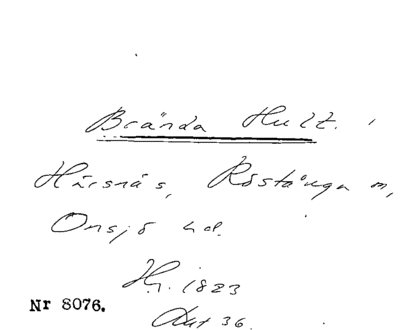 Brända Hult.
Härsnäs, Röstånga sn,
Onsjö hd.
Hj. 1823
Nr 8076.
Lut 36.